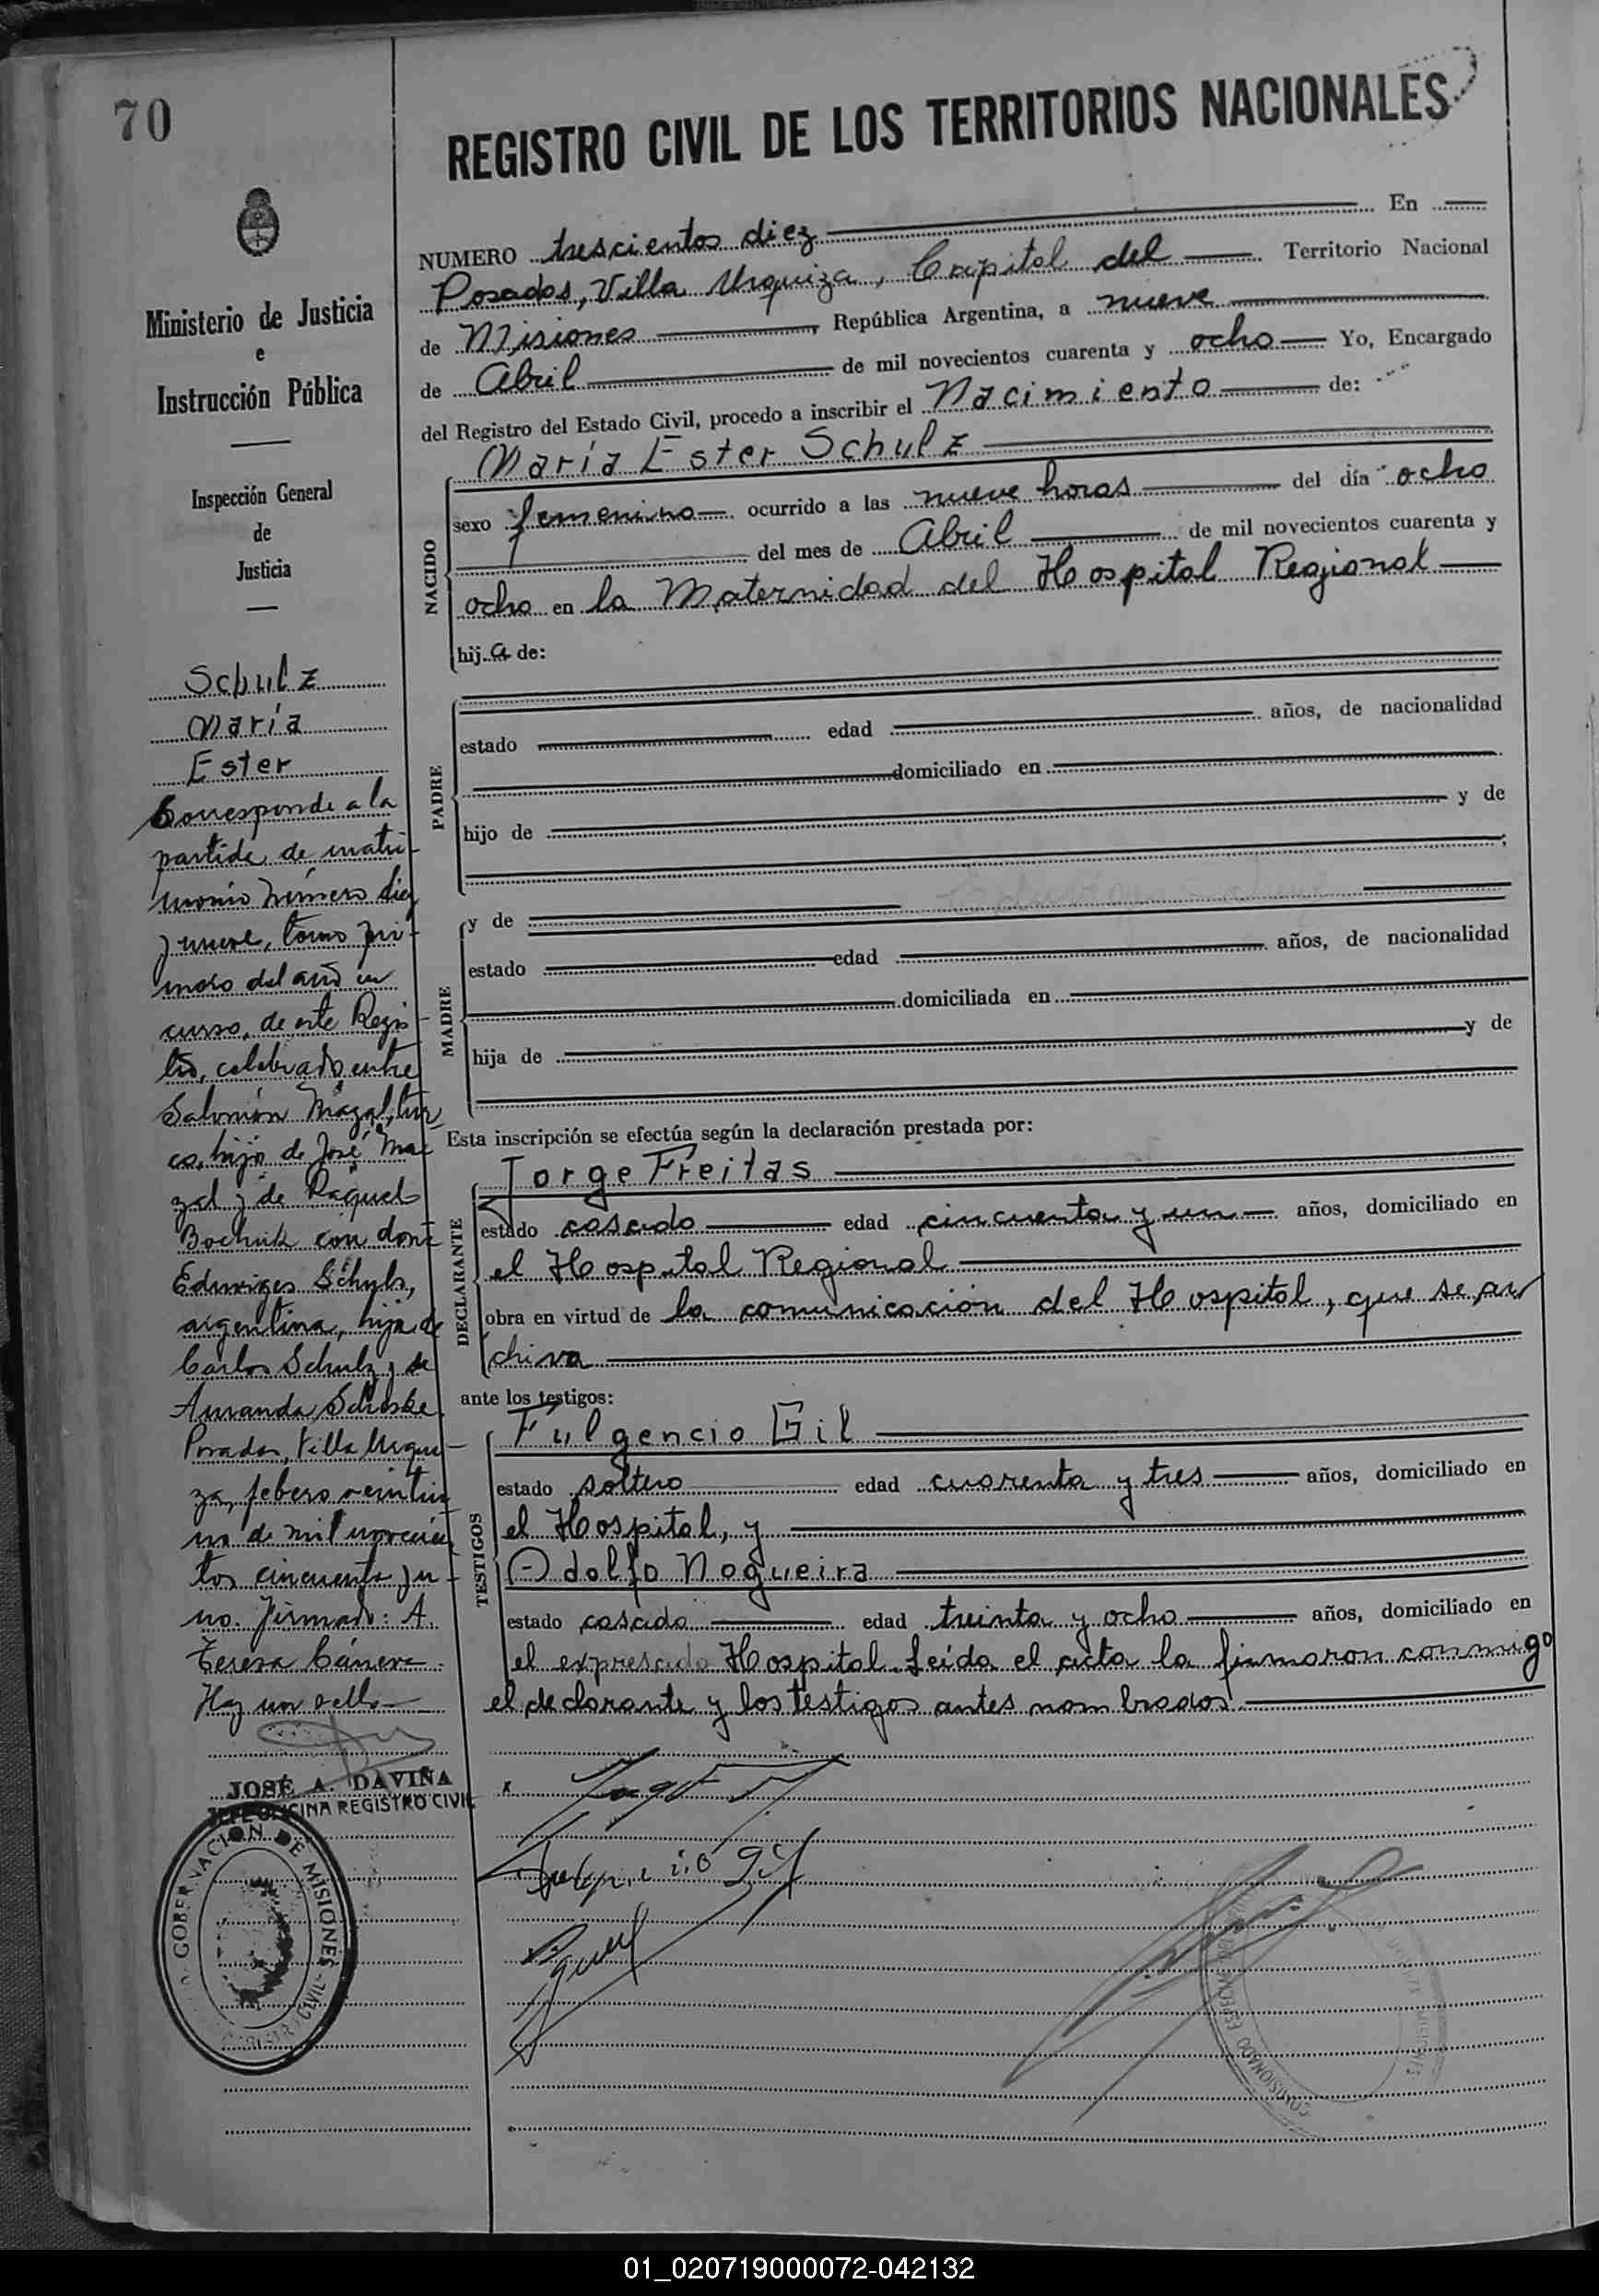 70
REGISTRO CIVIL DE LOS TERRITORIOS NACIONALES
Ministerio de Justicia
e
Instrucción Pública
Inspección General
de
Justicia
Schulz
María
Ester
Corresponde a la
partida de matri-
monio número diez
y nueve, tomo pri-
mero del año en
curso, de este Regis-
tro, celebrado entre
Salomón Mazal, tur
co, hijo de José Ma
zal y de Raquel
con doña
Eduviges Schulz,
argentina, hija de
Carlos Schulz y de
Amanda
Posadas, Villa Urqui-
za, febrero veintiu
no de mil novecien
tos cincuenta y u-
no. Firmado: A.
Teresa Cánera.
Hay un sello
JOSÉ A. DAVIÑA
JEFE OFICINA REGISTRO CIVIL
GOBERNACION DE MISIONES
REGISTRO CIVIL
NUMERO trescientos diez En
Posadas, Villa Urquiza, Capital del Territorio Nacional
de Misiones, República Argentina, a nueve
de Abril de mil novecientos cuarenta y ocho Yo, Encargado
del Registro del Estado Civil, procedo a inscribir el Nacimiento de:
NACIDO
María Ester Schulz
sexo femenino ocurrido a las nueve horas del día ocho
del mes de Abril de mil novecientos cuarenta y
ocho en la Maternidad del Hospital Regional
hija de:
PADRE
estado edad años, de nacionalidad
domiciliado en
hijo de y de
;
MADRE
y de
estado edad años, de nacionalidad
domiciliada en
hija de y de
Esta inscripción se efectúa según la declaración prestada por:
DECLARANTE
Jorge Freitas
estado casado edad cincuenta y un años, domiciliado en
el Hospital Regional
obra en virtud de la comunicación del Hospital, que se ar
chiva
ante los testigos:
TESTIGOS
Fulgencio Gil
estado soltero edad cuarenta y tres años, domiciliado en
el Hospital, y
Adolfo Nogueira
estado casado edad treinta y ocho años, domiciliado en
el expresado Hospital. Leída el acta la firmaron conmigo
el declarante y los testigos antes nombrados.
Fulgencio Gil
COMISIONADO ESPECIAL
01_020719000072-042132